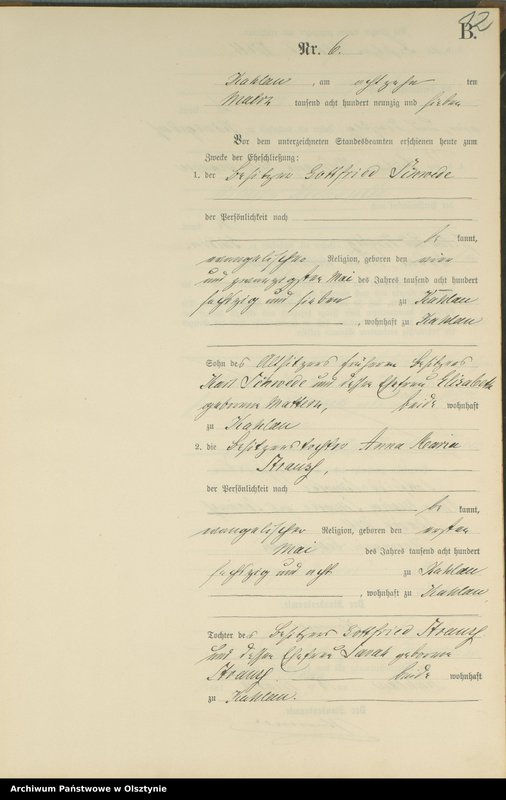 12
B.
Nr. 6.
Kahlau, am achtzehn ten
Maerz tausend acht hundert neunzig und sieben
Vor dem unterzeichneten Standesbeamten erschienen heute zum
Zwecke der Eheschließung:
1. der Besitzer Gottfried Schwede
der Persönlichkeit nach
be kannt,
evangelischer Religion, geboren den vier
und zwanzigsten Mai des Jahres tausend acht hundert
sechszig und sieben zu Kahlau
, wohnhaft zu Kahlau
Sohn des Altsitzers früheren Besitzers
Karl Schwede und dessen Ehefrau Elisabeth
geborene Mattern, beide wohnhaft
zu Kahlau
2. die Besitzerstochter Anna Maria
der Persönlichkeit nach
be kannt,
evangelischer Religion, geboren den ersten
Mai des Jahres tausend acht hundert
sechszig und acht zu Kahlau
, wohnhaft zu Kahlau
Tochter des Besitzers Gottfried
und dessen Ehefrau Sarah geborene
beide wohnhaft
zu Kahlau.
Archiwum Państwowe w Olsztynie